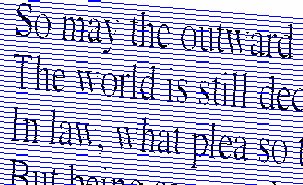 So may the outward
The world is still dec
In law, what plea so t
But being